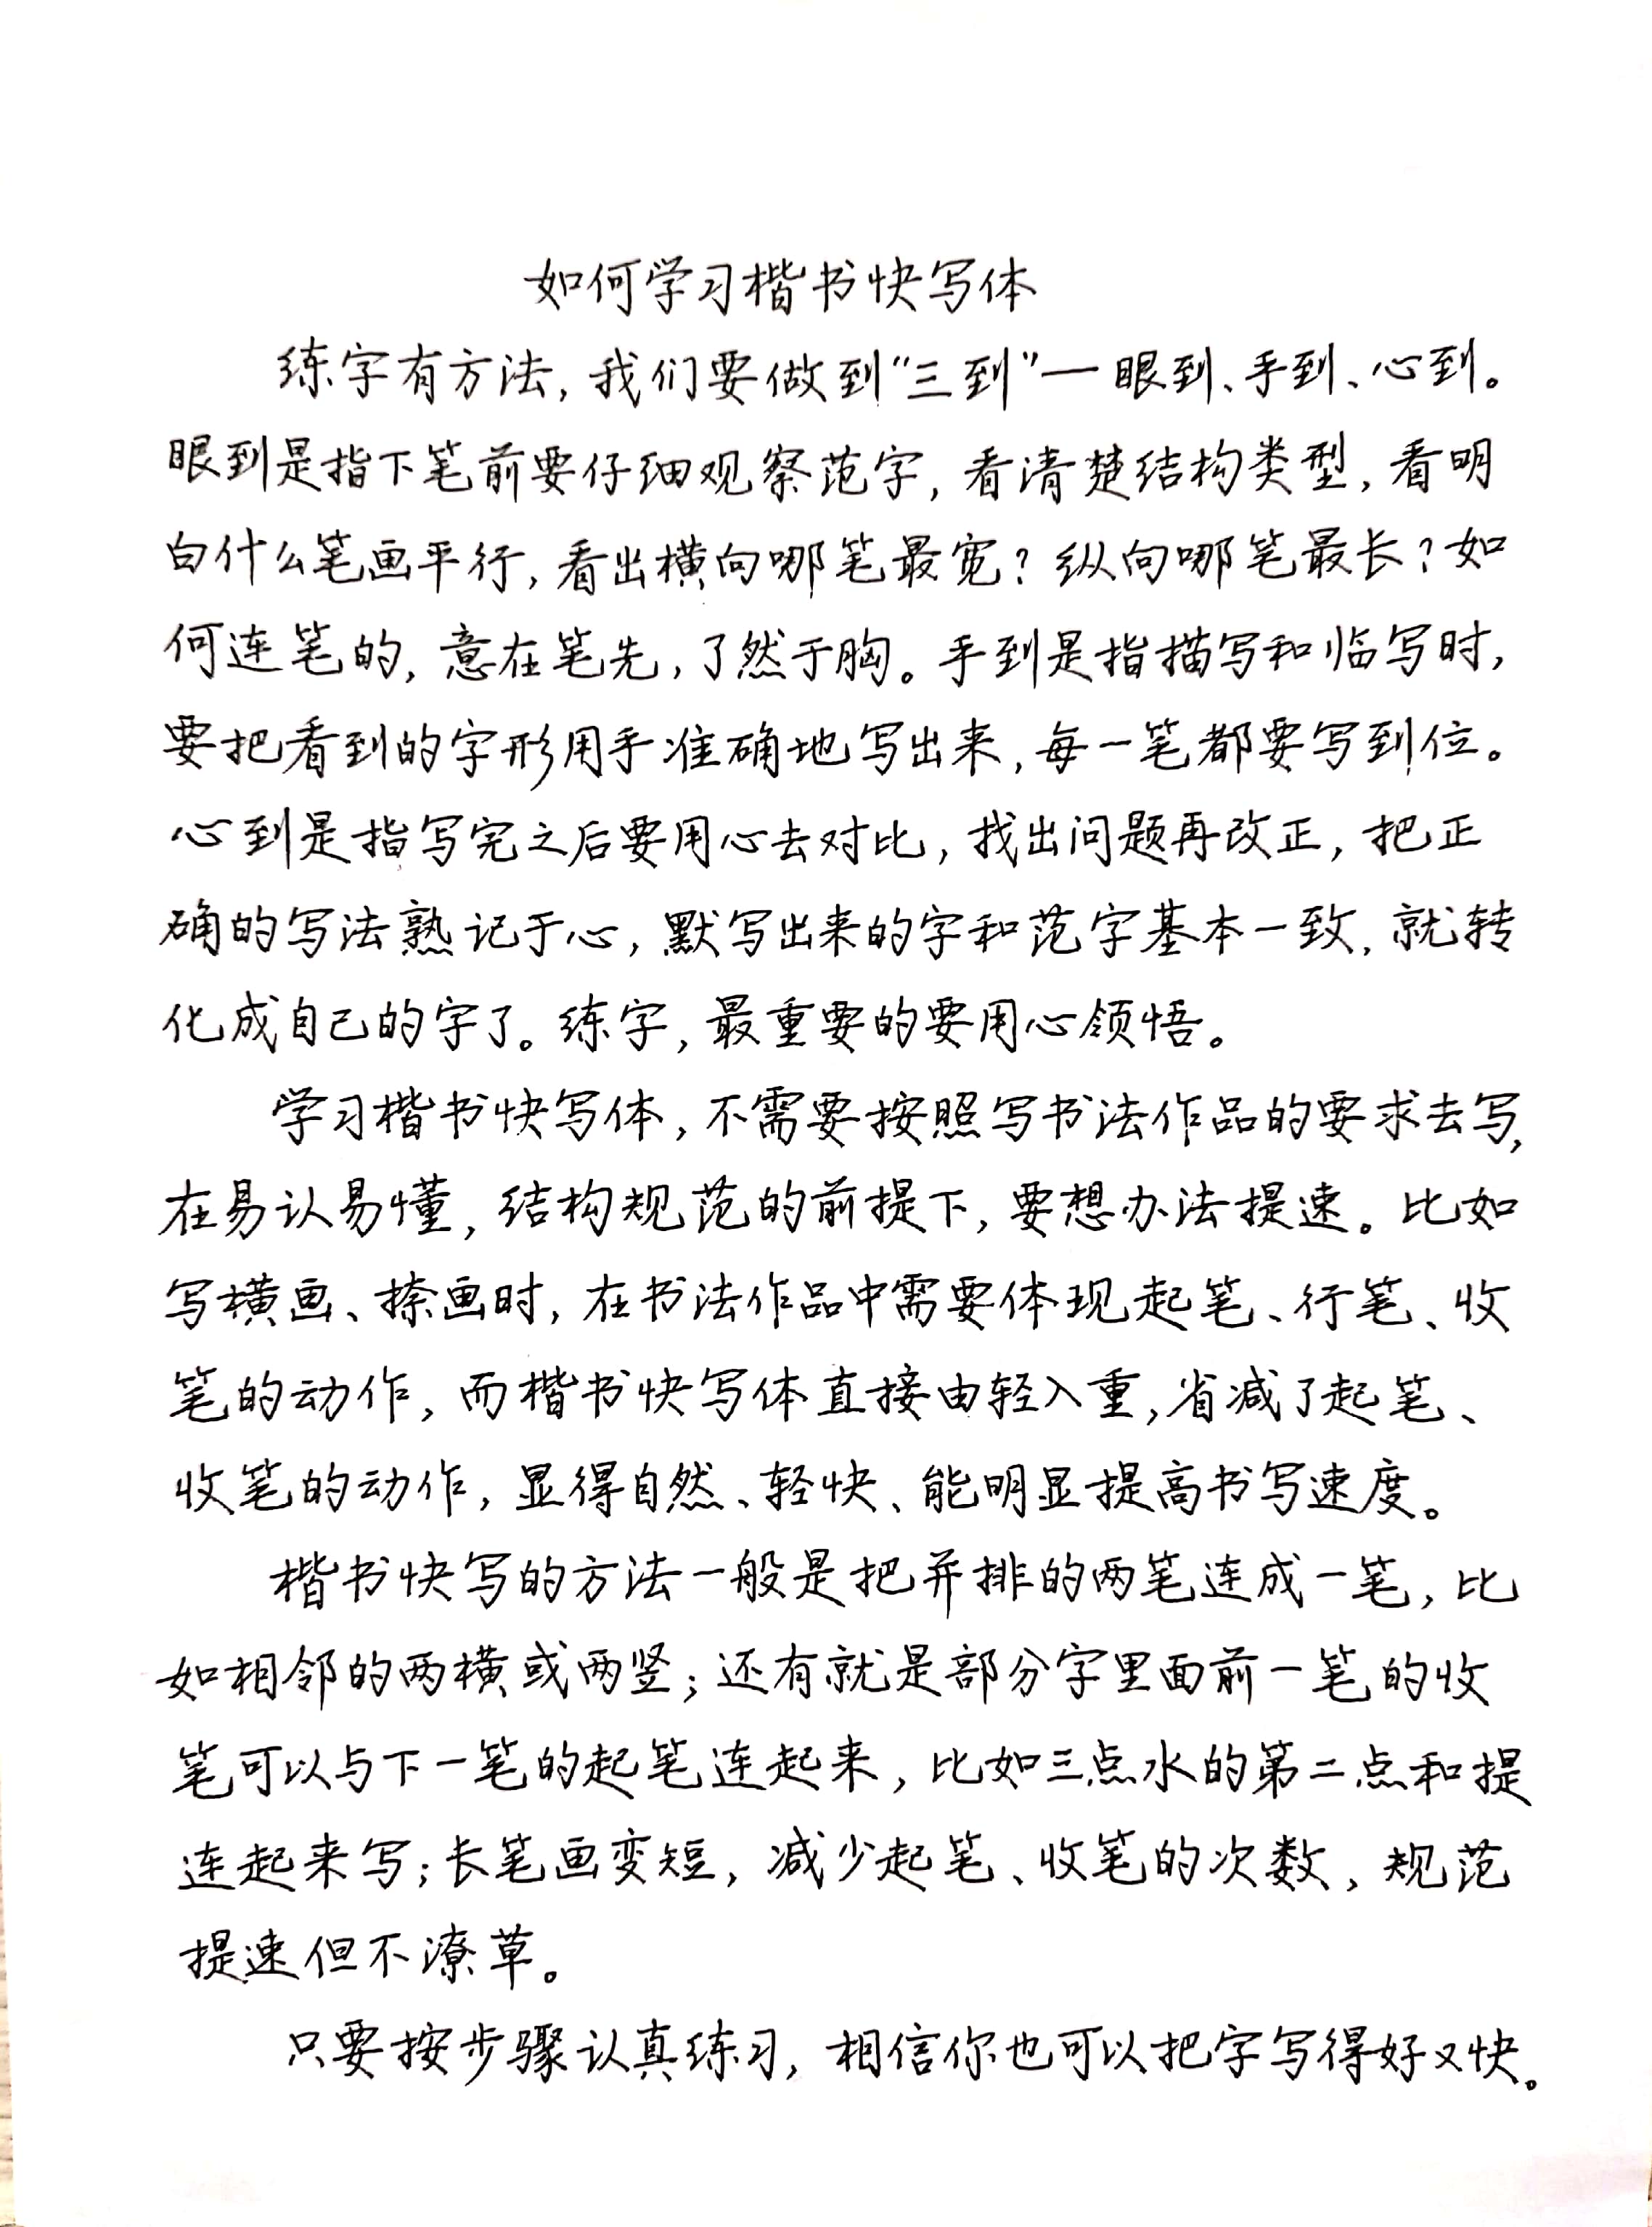 如何学习楷书快写体
练字有方法，我们要做到“三到”一眼到、手到、心到。
眼到是指下笔前要仔细观察范字，看清楚结构类型，看明
白什么笔画平行，看出横向哪笔最宽？纵向哪笔最长？如
何连笔的，意在笔先，了然于胸。手到是指描写和临写时，
要把看到的字形用手准确地写出来，每一笔都要写到位。
心到是指写完之后要用心去对比，找出问题再改正，把正
确的写法熟记于心，默写出来的字和范字基本一致，就转
化成自己的字了。练字，最重要的要用心领悟。
学习楷书快写体，不需要按照写书法作品的要求去写，
在易认易懂，结构规范的前提下，要想办法提速。比如
写横画、捺画时，在书法作品中需要体现起笔、行笔、收
笔的动作，而楷书快写体直接由轻入重，省减了起笔、
收笔的动作，显得自然、轻快、能明显提高书写速度。
楷书快写的方法一般是把并排的两笔连成一笔，比
如相邻的两横或两竖；还有就是部分字里面前一笔的收
笔可以与下一笔的起笔连起来，比如三点水的第二点和提
连起来写；长笔画变短，减少起笔、收笔的次数，规范
提速但不潦草。
只要按步骤认真练习，相信你也可以把字写得好又快。